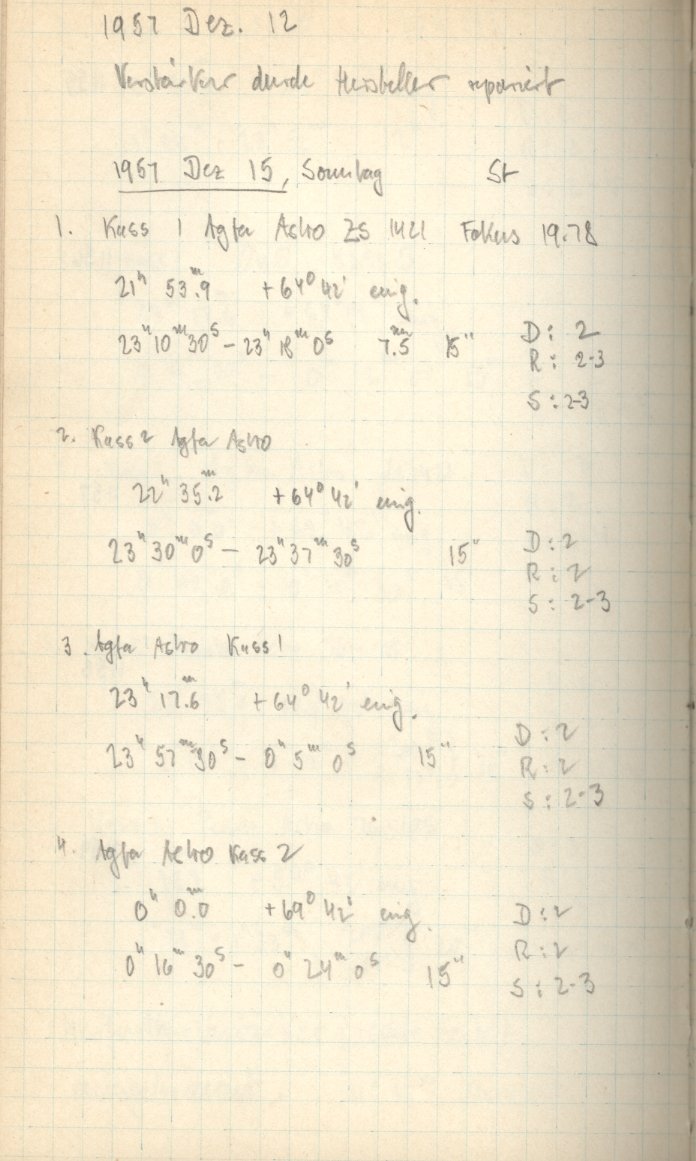 1957 Dez. 12
Verstärker durch Hersteller repariert
1957 Dez 15, Sonntag St
1. Kass 1 Agfa Astro ZS 1421 Fokus 19.78
21ʰ 53ᵐ.9 +64° 42' eing.
23ʰ 10ᵐ 30ˢ – 23ʰ 18ᵐ 0ˢ 7ᵐᵐ.5 15" D: 2
R: 2-3
S: 2-3
2. Kass 2 Agfa Astro
22ʰ 35ᵐ.2 +64° 42' eing.
23ʰ 30ᵐ 0ˢ – 23ʰ 37ᵐ 30ˢ 15" D: 2
R: 2
S: 2-3
3. Agfa Astro Kass 1
23ʰ 17ᵐ.6 +64° 42' eing.
23ʰ 57ᵐ 30ˢ – 0ʰ 5ᵐ 0ˢ 15" D: 2
R: 2
S: 2-3
4. Agfa Astro Kass 2
0ʰ 0ᵐ.0 +69° 42' eing. D: 2
0ʰ 16ᵐ 30ˢ – 0ʰ 24ᵐ 0ˢ 15" R: 2
S: 2-3